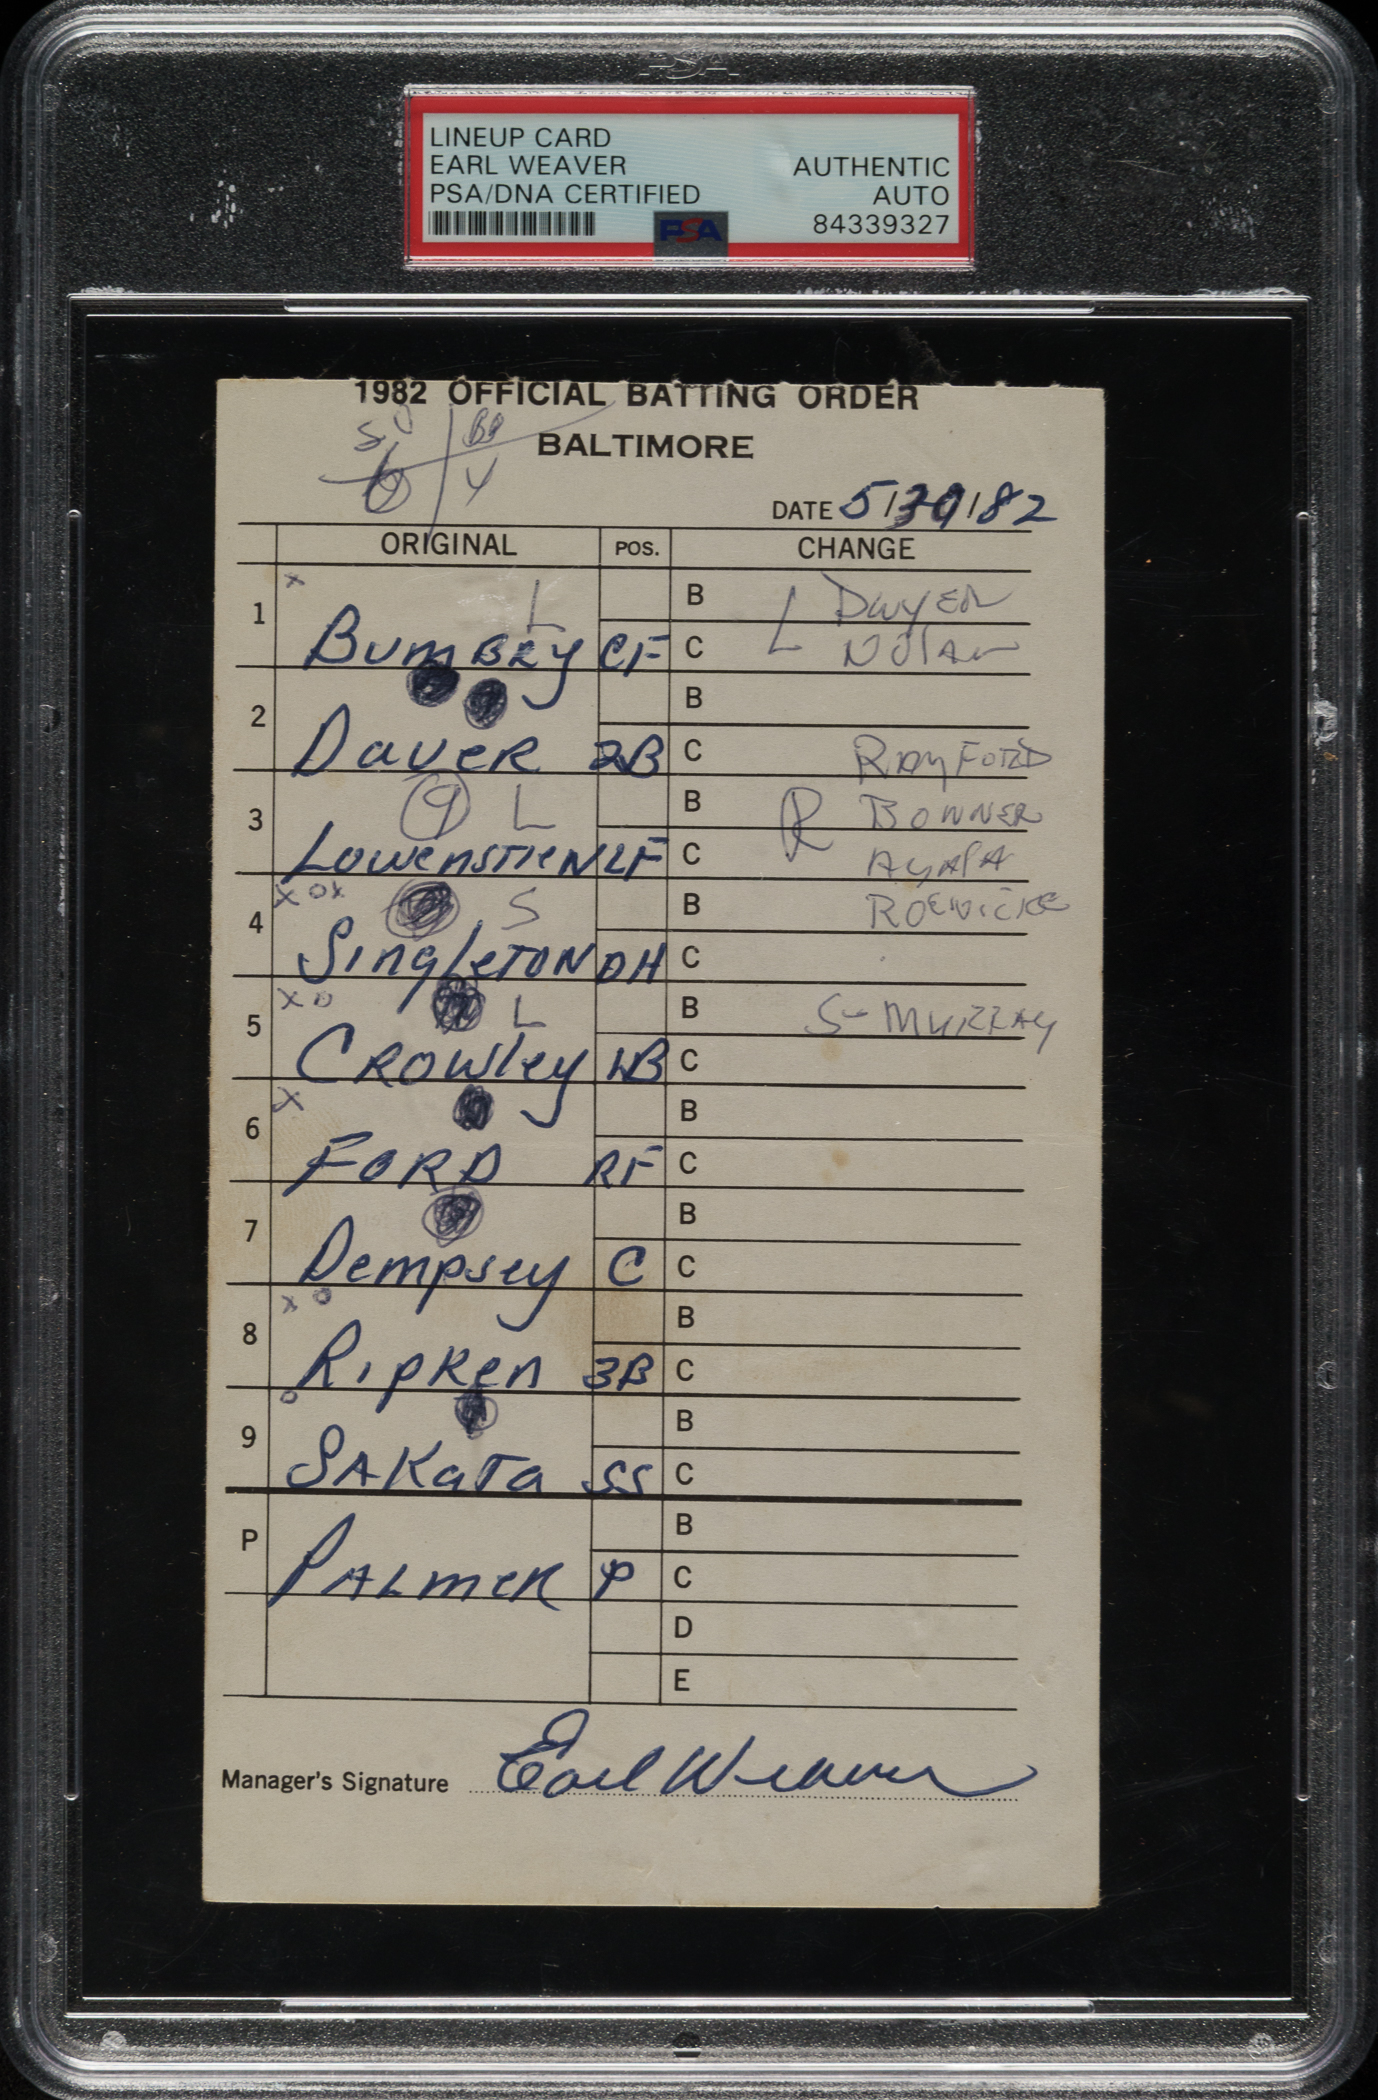 LINEUP CARD
EARL WEAVER
PSA/DNA CERTIFIED
AUTHENTIC
AUTO
84339327
PSA
1982 OFFICIAL BATTING ORDER
BALTIMORE
DATE 5/30/82
ORIGINAL POS. CHANGE
1 x L BUMBRY CF B L DWYER
C NOLAN
2 DAUER 2B B
C RAYFORD
3 9 L LOWENSTIEN LF B R BONNER
C AYALA
4 x ox S SINGLETON DH B ROENICKE
C
5 x o L CROWLEY 1B B S- MURRAY
C
6 x FORD RF B
C
7 DEMPSEY C B
C
8 x o RIPKEN 3B B
C
9 o SAKATA SS B
C
P PALMER P B
C
D
E
Manager's Signature Earl Weaver